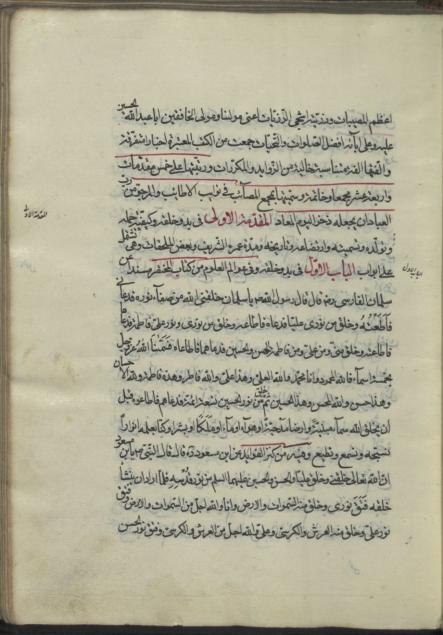 اعظم المصيبات ورزيته اشجى الرزيات اعنى مولينا ومولى الخافقين ابا عبدالله الحسين
عليه وعلى آبائه افضل الصلوات والتحيات جمعت من الكتب المعتبرة اخبار متفرقة
والفتها متناسبة خالية من الزوايد والمكررات ورتبتها على خمس مقدمات
واربعة عشر مجمعا وخاتمة وسميتها بمجمع المصائب في نوايب الاطايب والمرجو من رب
العباد ان يجعله ذخرا ليوم المعاد المقدمة الاولى في بدو خلقه وكيفية حمله
وتولده وتسميته وارضاعه وتاريخه ومدة عمره الشريف وبعض الملحقات وهي تشتمل
على ابواب الباب الاول في بدو خلقه وفي عوالم العلوم من كتاب المختصر مسندا عن
سلمان الفارسي ره قال قال رسول الله ص يا سلمان خلقني الله من صفاء نوره فدعاني
فاطعته وخلق من نوري عليا فدعاه فاطاعه وخلق من نوري ونور علي فاطمة فدعاها
فاطاعته وخلق مني ومن علي ومن فاطمة الحسن والحسين فدعاهما فاطاعاه فسمانا الله عز وجل
بخمسة اسماء فالله المحمود وانا محمد والله العلي وهذا علي والله فاطر وهذه فاطمة والله الاحسان
وهذا حسن والله المحسن وهذا الحسين ثم خلق من نور الحسين تسعة ائمة فدعاهم فاطاعوه قبل
ان يخلق الله سماء مبنية وارضا مدحية او هواء او ماء او ملكا او بشرا وكنا بعلمه انوارا
نسبحه ونسمع ونطيع وفيه من كنز الفوايد عن ابن مسعود ره قال قال النبي ص يا بن مسعود
ان الله تعالى خلقني وخلق عليا والحسن والحسين عليهما السلم من نور قدسه فلما اراد ان ينشأ
خلقه فتق نوري وخلق منه السموات والارض وانا والله اجل من السموات والارض وفتق
نور علي وخلق منه العرش والكرسي وعلي والله اجل من العرش والكرسي وفتق نور الحسن
المقدمة الاولى
الباب الاول